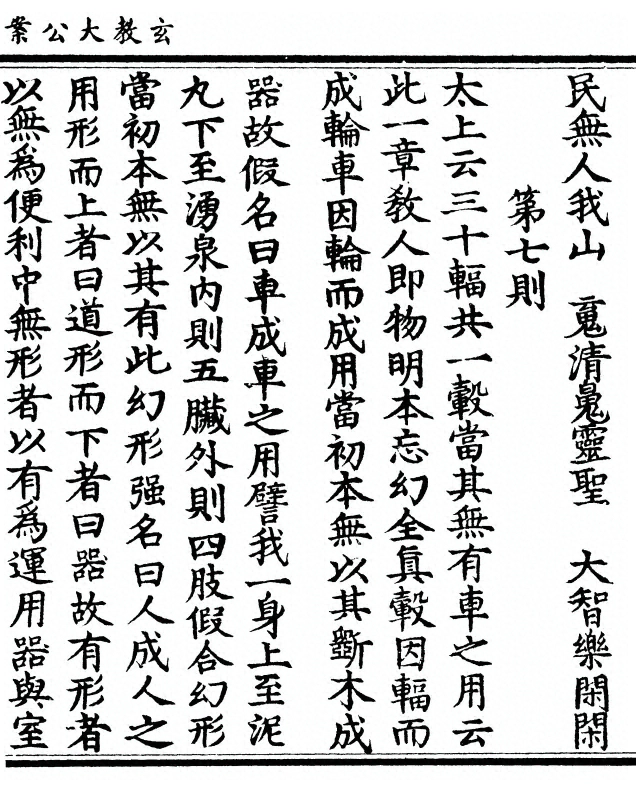 玄教大公案
民無人我山　魂清魄靈聖　大智樂閑閑
第七則
太上云三十輻共一轂當其無有車之用云
此一章教人即物明本忘幻全眞轂因輻而
成輪車因輪而成用當初本無以其斵木成
器故假名曰車成車之用譬我一身上至泥
丸下至湧泉内則五臟外則四肢假合幻形
當初本無以其有此幻形强名曰人成人之
用形而上者曰道形而下者曰器故有形者
以無爲便利中無形者以有爲運用器與室